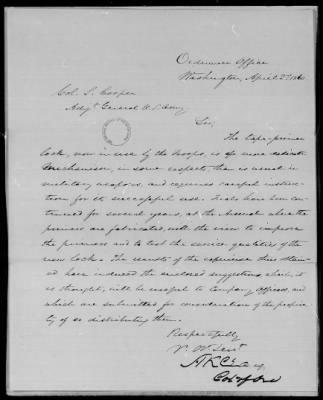 Ordnance Office
Washington, April 2d 1860
Col. S. Cooper
Adjt. General U.S. Army
Sir,
The tape-primer
lock, now in use by the troops, is of more delicate
mechanism, in some respects than is usual in
military weapons, and requires careful instruc-
tion for its successful use. Trials have been con-
tinued for several years, at the Arsenal where the
primers are fabricated, with the view to improve
the primers and to test the service qualities of the
new lock. The results of the experience thus obtain-
ed have induced the enclosed suggestions, which, it
is thought, will be useful to Company officers, and
which are submitted for consideration of the proprie-
ty of so distributing them.
Respectfully
Yr. Obt. Servt.
H K Craig
Col of Ord